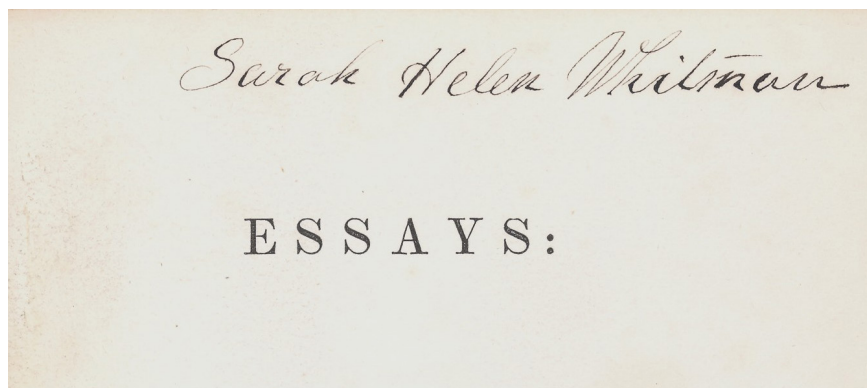 Sarah Helen Whitman
ESSAYS: